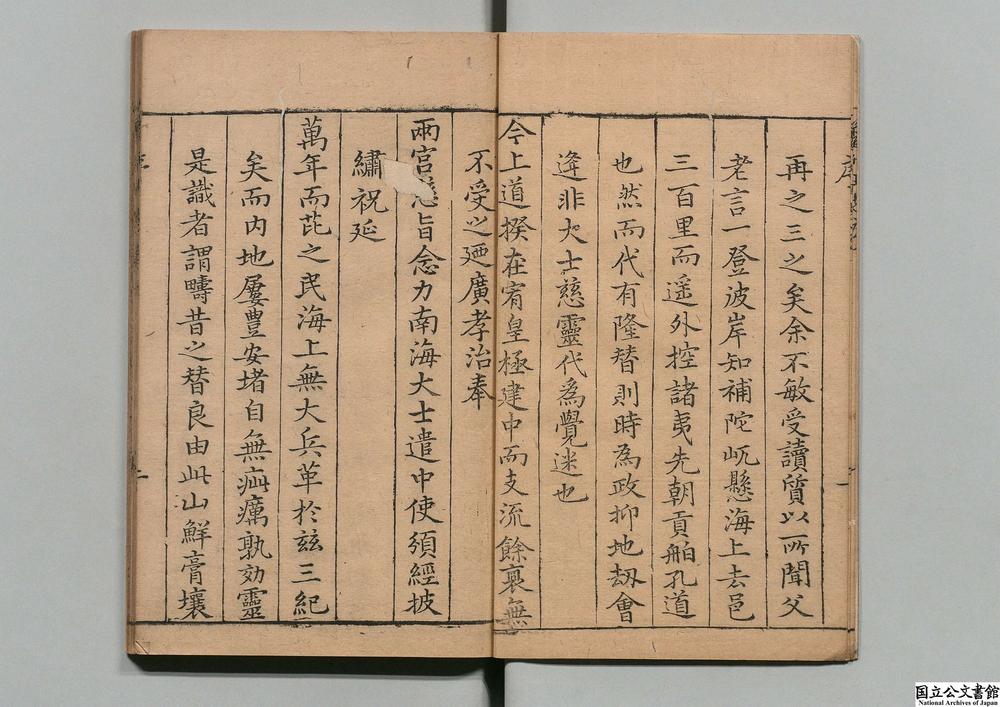 再之三之矣余不敏受讀質以所聞父
老言一登彼岸知補陀屼懸海上去邑
三百里而遥外控諸夷先朝貢舶孔道
也然而代有隆替則時為政抑地刼會
逢非大士慈靈代為覺迷也
今上道揆在宥皇極建中而支流餘裔無
不受之廼廣孝治奉
兩宮慈旨念力南海大士遣中使須經披
繡祝延
萬年而茈之民海上無大兵革於玆三紀
矣而内地屢豊安堵自無疵癘孰効靈
是識者謂疇昔之替良由此山鮮膏壤
序
国立公文書館
National Archives of Japan